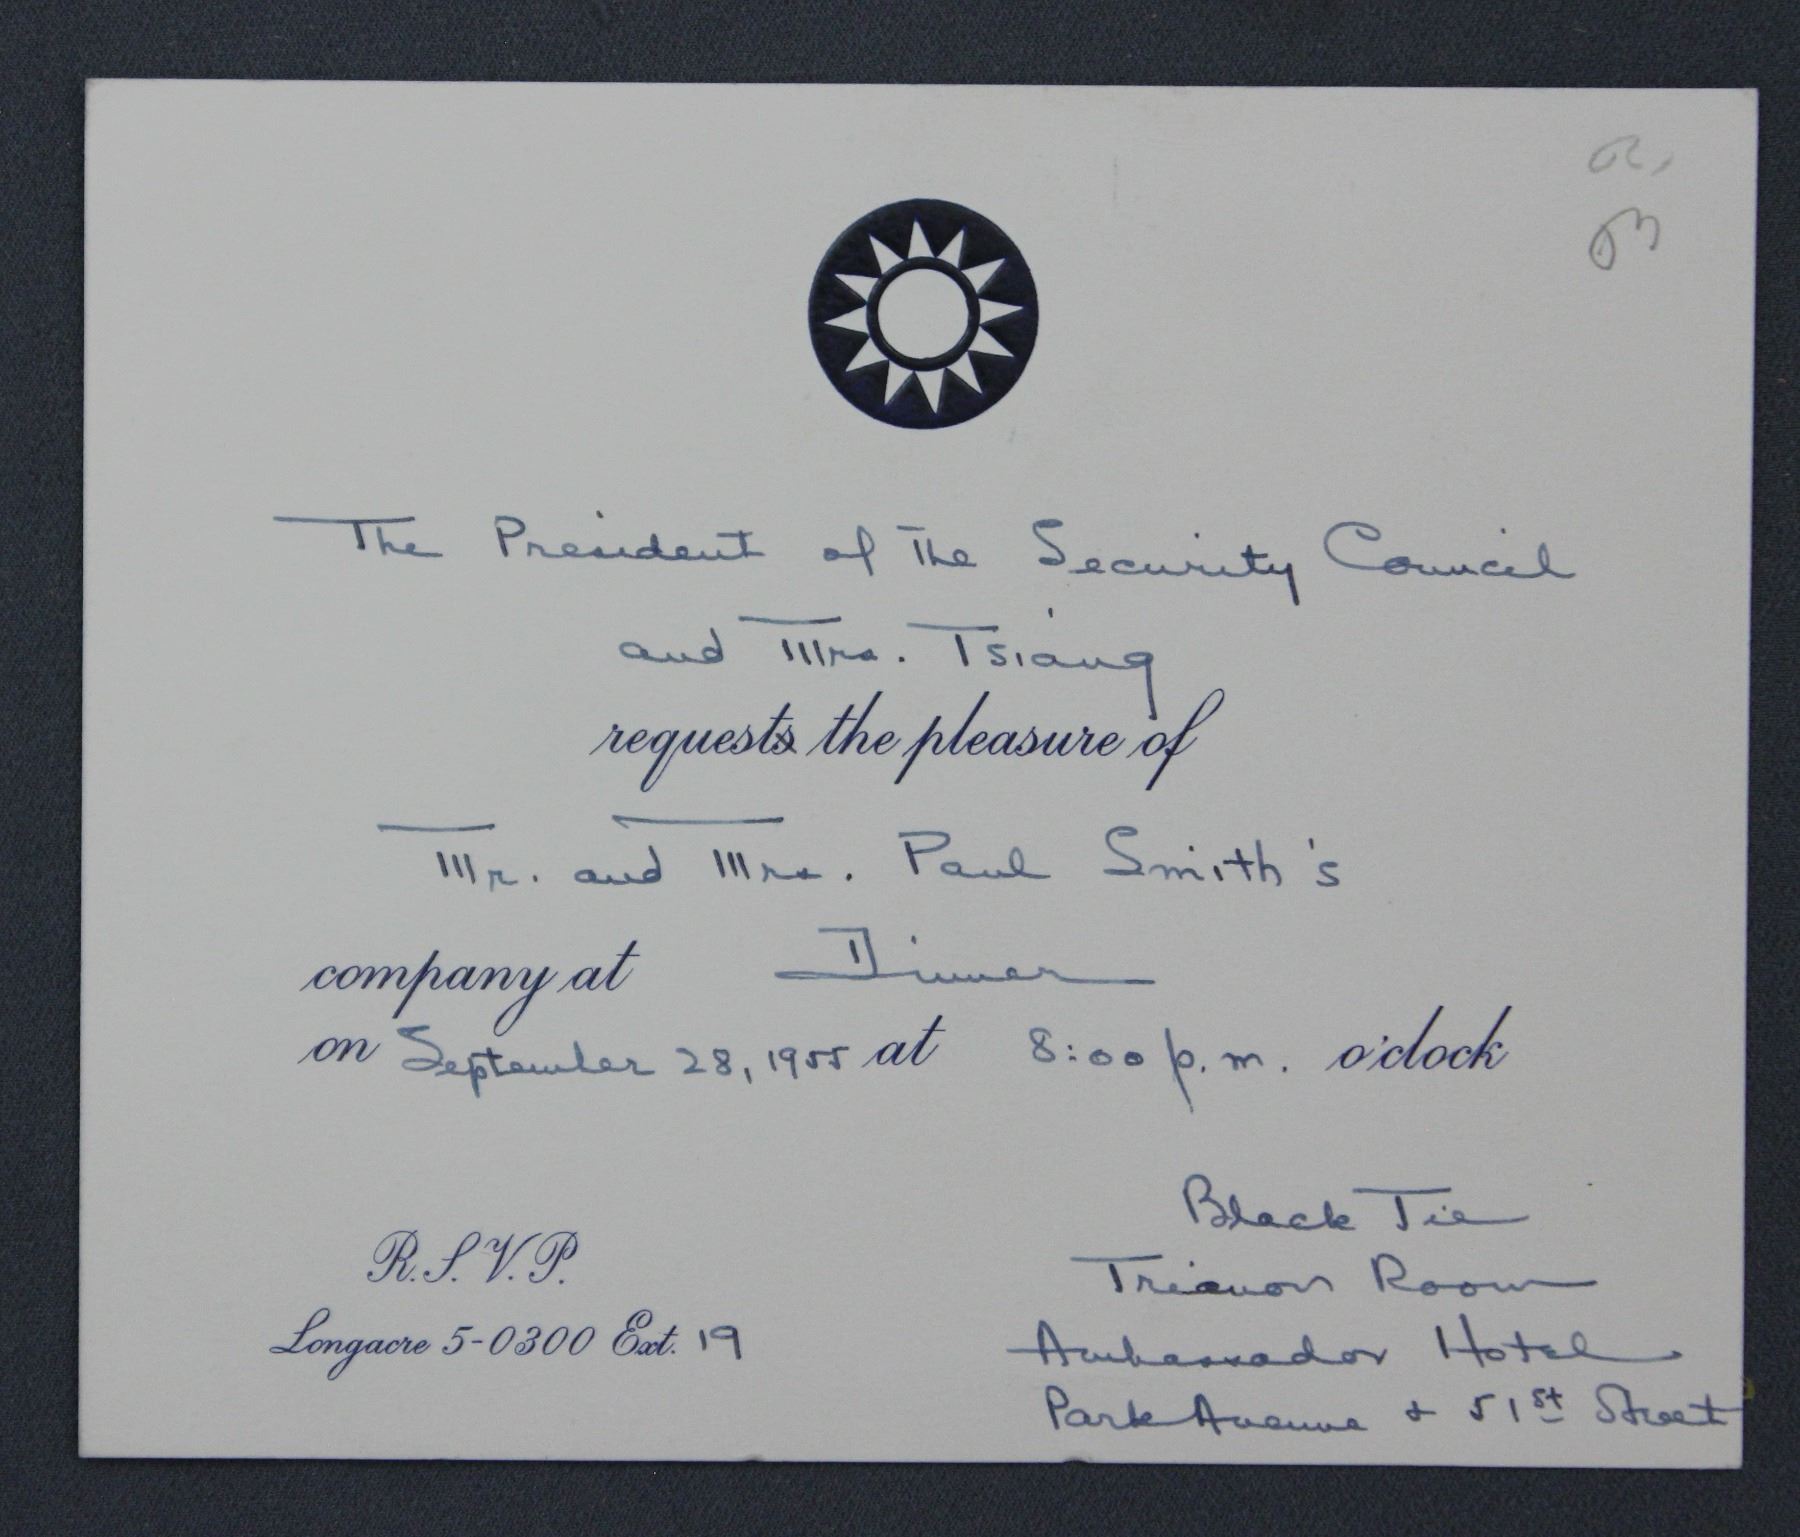 The President of The Security Council
and Mrs. Tsiang
requests the pleasure of
Mr. and Mrs. Paul Smith's
company at Dinner
on September 28, 1955 at 8:00 p.m. o'clock
Black Tie
Trianon Room
Ambassador Hotel
Park Avenue & 51st Street
R.S.V.P.
Longacre 5-0300 Ext. 19